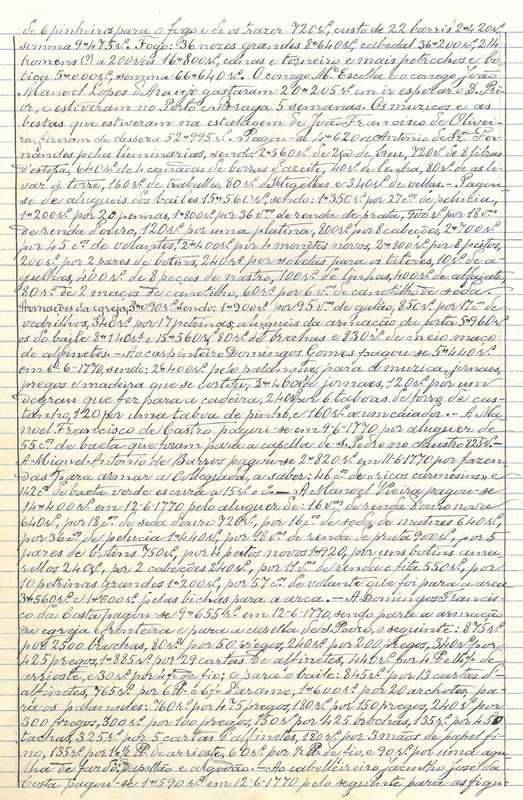 de 6 pinheiros para o fogo e de os trazer 720 rs., custo de 22 barris 2#420 rs.
somma 9#475 rs. Fogo: 36 novos grandes 8#640 rs., cabedal 36#200 rs., 214
homens (?) a 200 rs. 16#800 rs., canas e tozneiro e mais petrechos e bo-
tica 5#000 rs., somma 66#640 rs. O conego Me. Escolla e o conego João
Manoel Lopes de Araujo gastaram 20#205 rs. em ir esperar o D. Pri-
or, e estiveram no Porto e Braga 5 semanas. Os muzicos e as
bestas que estiveram na estalagem de João Francisco de Olivei-
ra, fizeram de despeza 52#995 rs. Pagou-se 4#620 a Antonio de Fr. Fer-
nandes pelas luminarias, sendo: 2#560 rs. de 2@ de breu, 720 rs. de 8 libras
d'estopa, 640 rs. de 4 canadas de borras d'azeite, 40 rs. de lenha, 80 rs. de as le-
var á torre, 160 rs. de trabalho, 80 rs. de tigellas e 340 rs. de vellas. - Pagou-
se de alugueis dos bailes 15#560 rs., sendo: 1#350 por 27 cos. de pelucia,
1#200 por 20 pennas, 1#800 por 36 vas. de renda de prata, 900 por 18 vas.
de renda d'ouro, 120 rs. por uma platina, 800 rs. por 8 cabeções, 2#700 rs.
por 45 cos. de volantes, 2#400 por 4 monetes novos, 2#800 por 8 peitos,
200 rs. por 2 pares de botins, 240 rs. por sovelas para os titeres, 10 rs. de a-
gulhas, 400 rs. de 8 peças de nastro, 100 rs. de linhas, 400 rs. de alfaiate,
80 rs. de 2 maços de canotilho, 60 rs. por 6 vas. de canotilho de seda.
Armações da egreja, 3#090 rs. sendo: 1#900 por 95 vas. de galão, 850 rs. por 17 cos. de
vedrilhos, 340 rs. por 17 petrinas, alugueis da armação da porta 5#960 rs.
os do baile 8#140 rs. e 15#560 rs., 80 rs. de brochas e 830 rs. de meio maço
de alfinetes. - Ao carpinteiro Domingos Gomes pagou-se 5#440 rs.
em 6-6-1770, sendo: 2#400 rs. pelo palanque para a muzica, jornaes,
pregos e madeira que se cortou, 2#460 rs. de jornaes, 120 rs. por um
degrau que fez para a cadeira, 240 rs. por 6 taboas de forro de cas-
tanho, 120 por uma taboa de pinho, e 160 rs. a um caiador. - A Ma-
noel Francisco de Castro pagou-se em 9-6-1770 por aluguer de
55 cos. de baeta que foram para a capella de S. Pedro no claustro 825 rs. -
A Miguel Antonio de Barros pagou-se 2#820 rs. em 11-6-1770 por fazen-
das para armar a Collegiada, a saber: 46 cos. de «ricos carmesins» e
142 cos. de baeta verde escura a 15 rs. e co. - A Manoel Vieira pagou-se
14#400 rs. em 12-6-1770 pelo aluguer de: 16 vas. de renda d'ouro nova
640 rs., por 18 cos. de seda d'ouro 720 rs., por 16 cos. de seda de matizes 640 rs.,
por 36 cos. de pelucia 1#440 rs., por 18 vas. de renda de prata 900 rs., por 5
pares de botins 750 rs., por 4 peitos novos 1#920, por uns botins ama-
rellos 240 rs., por 2 cabeções 240 rs., por 11 vas. de renda e fita 550 rs., por
10 petrinas grandes 1#200 rs., por 57 cos. de volante que foi para a arca
3#560 rs. e 1#600 rs. pelas bichas para a arca. - A Domingos Francis-
co da Costa pagou-se 9#655 rs. em 12-6-1770, sendo para a armação
da egreja e fronteira e para a capella de S. Pedro, o seguinte: 875 rs.
por 2500 brochas, 80 rs. por 50 pregos, 240 rs. por 200 pregos, 340 rs. por
425 pregos, 1#885 rs. por 29 cartas de alfinetes, 440 rs. por 4 P. 4 1/2 de
arrioste, e 30 rs. por 4 1/2 de fio; e para o baile: 845 rs. por 13 cartas d'-
alfinetes, 765 rs. por 6 P. e 6 1/2 d'arame, 1#600 rs. por 20 archotes, pa-
ra os palanques: 760 rs. por 475 pregos, 180 rs. por 150 pregos, 240 rs. por
300 pregos, 300 rs. por 150 pregos, 130 rs. por 425 brochas, 135 rs. por 450
tachas, 325 rs. por 5 cartas d'alfinetes, 180 rs. por 3 mãos de papel fi-
no, 135 rs. por 1 e 1/2 P. de arrioste, 60 rs. por 1/2 P. de fio, e 90 rs. por uma agu-
lha de fardo, papellão e algodão. - Ao cabelleireiro Jacintho José da
Costa pagou-se 1#590 rs. em 12-6-1770 pelo seguinte, para as figu-